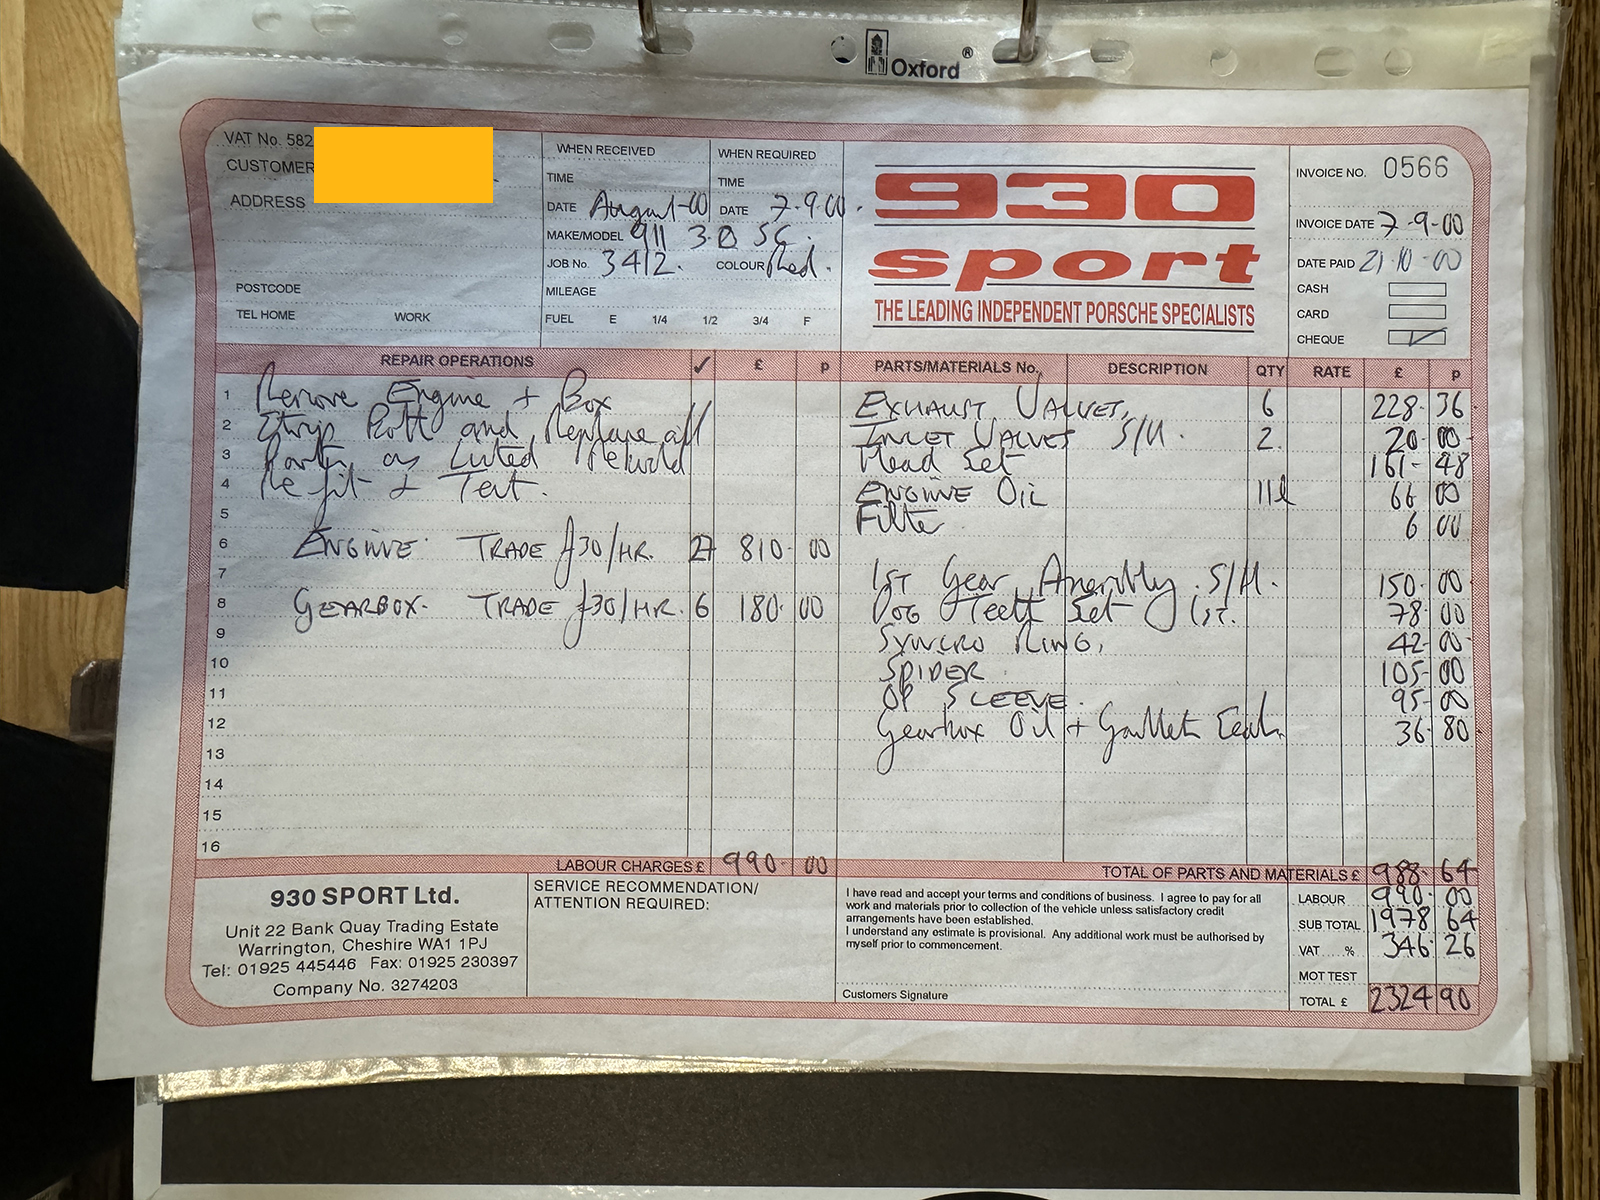 Oxford®
VAT No. 582
CUSTOMER
ADDRESS
POSTCODE
TEL HOME WORK
WHEN RECEIVED
TIME
DATE August-00
WHEN REQUIRED
TIME
DATE 7-9-00.
MAKE/MODEL 911 3.0 SC.
JOB No. 3412. COLOUR Red.
MILEAGE
FUEL E 1/4 1/2 3/4 F
930
sport
THE LEADING INDEPENDENT PORSCHE SPECIALISTS
INVOICE NO. 0566
INVOICE DATE 7-9-00
DATE PAID 21-10-00
CASH
CARD
CHEQUE ✓
REPAIR OPERATIONS ✓ £ p
1 Remove Engine + Box
2 Strip Both and Replace all
3 Parts as Listed Rebuild
4 Refit & Test.
5
6 ENGINE. TRADE £30/HR. 27 810. 00
7
8 GEARBOX. TRADE £30/HR. 6 180. 00
9
10
11
12
13
14
15
16
LABOUR CHARGES £ 990. 00
PARTS/MATERIALS No. DESCRIPTION QTY RATE £ p
EXHAUST VALVES, 6 228. 36
INLET VALVES S/H. 2. 20 00
Head Set 161- 48
ENGINE OIL 11l 66 00
Filter 6 00
1ST Gear Assembly. S/H. 150. 00
DOG Teeth Set 1ST. 78. 00
SYNCRO RING, 42- 00
SPIDER 105- 00
OP SLEEVE. 95- 00
Gearbox Oil + Gasket Seals. 36. 80
TOTAL OF PARTS AND MATERIALS £ 988. 64
LABOUR 990. 00
SUB TOTAL 1978 64
VAT.....% 346. 26
MOT TEST
TOTAL £ 2324 90
930 SPORT Ltd.
Unit 22 Bank Quay Trading Estate
Warrington, Cheshire WA1 1PJ
Tel: 01925 445446 Fax: 01925 230397
Company No. 3274203
SERVICE RECOMMENDATION/
ATTENTION REQUIRED:
I have read and accept your terms and conditions of business. I agree to pay for all
work and materials prior to collection of the vehicle unless satisfactory credit
arrangements have been established.
I understand any estimate is provisional. Any additional work must be authorised by
myself prior to commencement.
Customers Signature